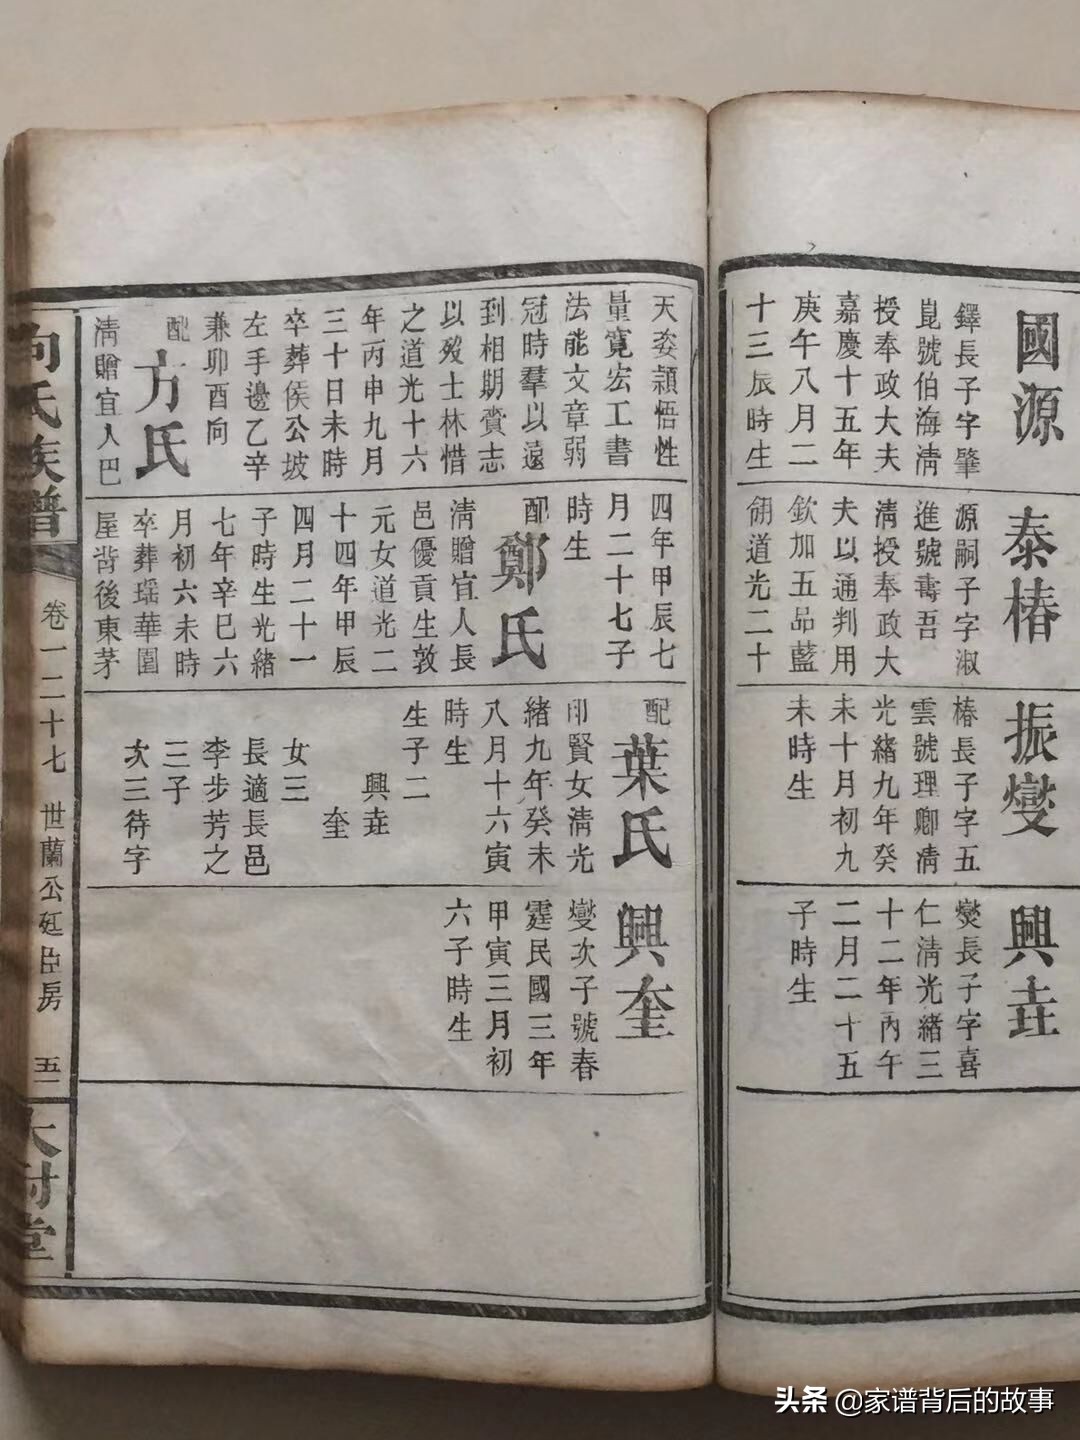 國源
鐸長子字肇
崑號伯海淸
授奉政大夫
嘉慶十五年
庚午八月二
十三辰時生
天姿頴悟性
量寬宏工書
法能文章弱
冠時羣以遠
到相期賫志
以歿士林惜
之道光十六
年丙申九月
三十日未時
卒葬侯公坡
左手邊乙辛
兼卯酉向
配方氏
淸贈宜人巴
泰椿
源嗣子字淑
進號壽吾
淸授奉政大
夫以通判用
欽加五品藍
翎道光二十
四年甲辰七
月二十七子
時生
配鄭氏
淸贈宜人長
邑優貢生敦
元女道光二
十四年甲辰
四月二十一
子時生光緒
七年辛巳六
月初六未時
卒葬瑶華園
屋背後東茅
振燮
椿長子字五
雲號理卿淸
光緒九年癸
未十月初九
未時生
配葉氏
印賢女淸光
緒九年癸未
八月十六寅
時生
生子二
興垚
奎
女三
長適長邑
李步芳之
三子
次三待字
興垚
燮長子字喜
仁淸光緒三
十二年丙午
二月二十五
子時生
興奎
燮次子號春
霆民國三年
甲寅三月初
六子時生
向氏族譜
卷一二十七
世蘭公廷臣房
堂
头条 @家谱背后的故事